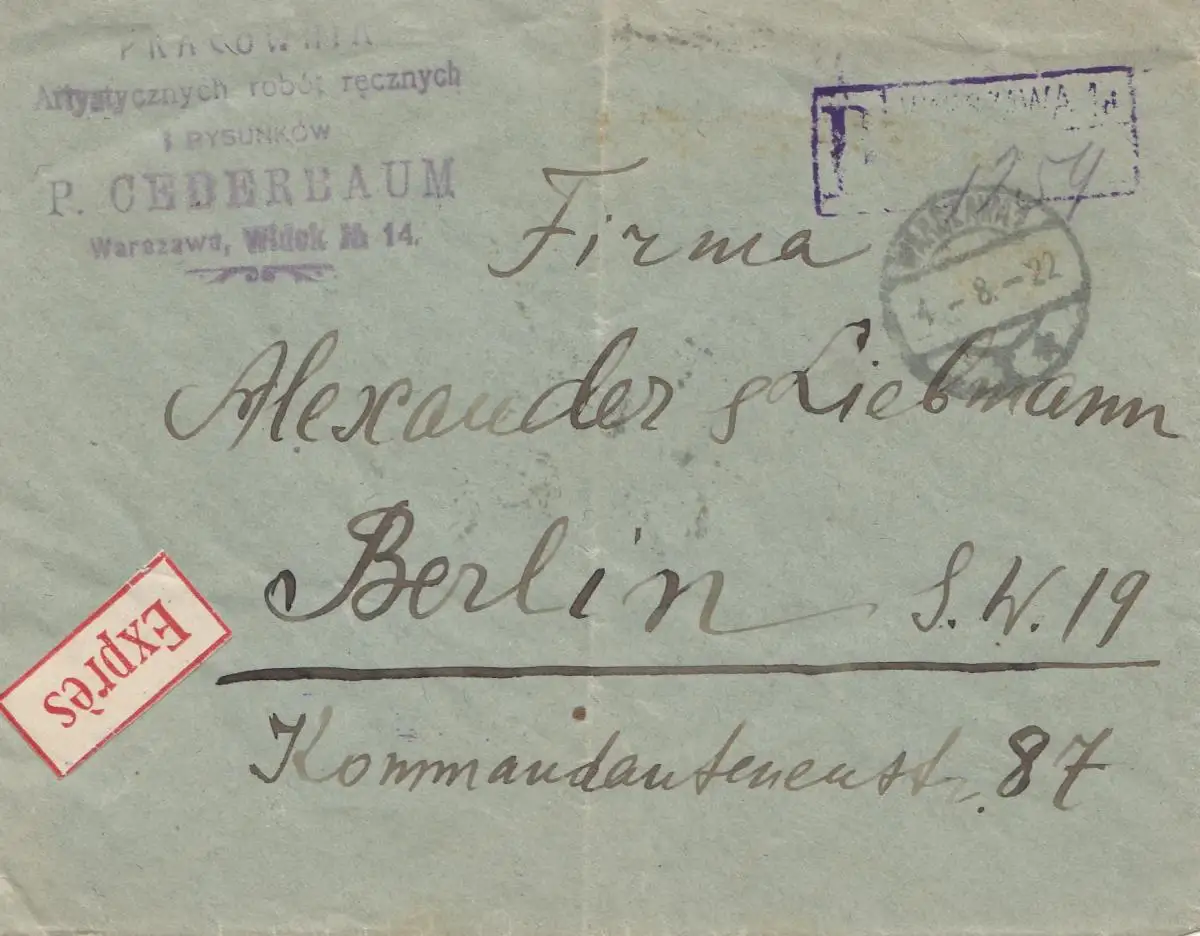 PRACOWNIA
Artystycznych robót ręcznych
i RYSUNKÓW
P. CEDERBAUM
Warszawa, Widok № 14.
R WARSZAWA 1a
WARSZAWA 1
4 - 8. - 22
Firma
Alexander & Liebmann
Berlin S.W. 19
Exprès
Kommandantenenst. 87